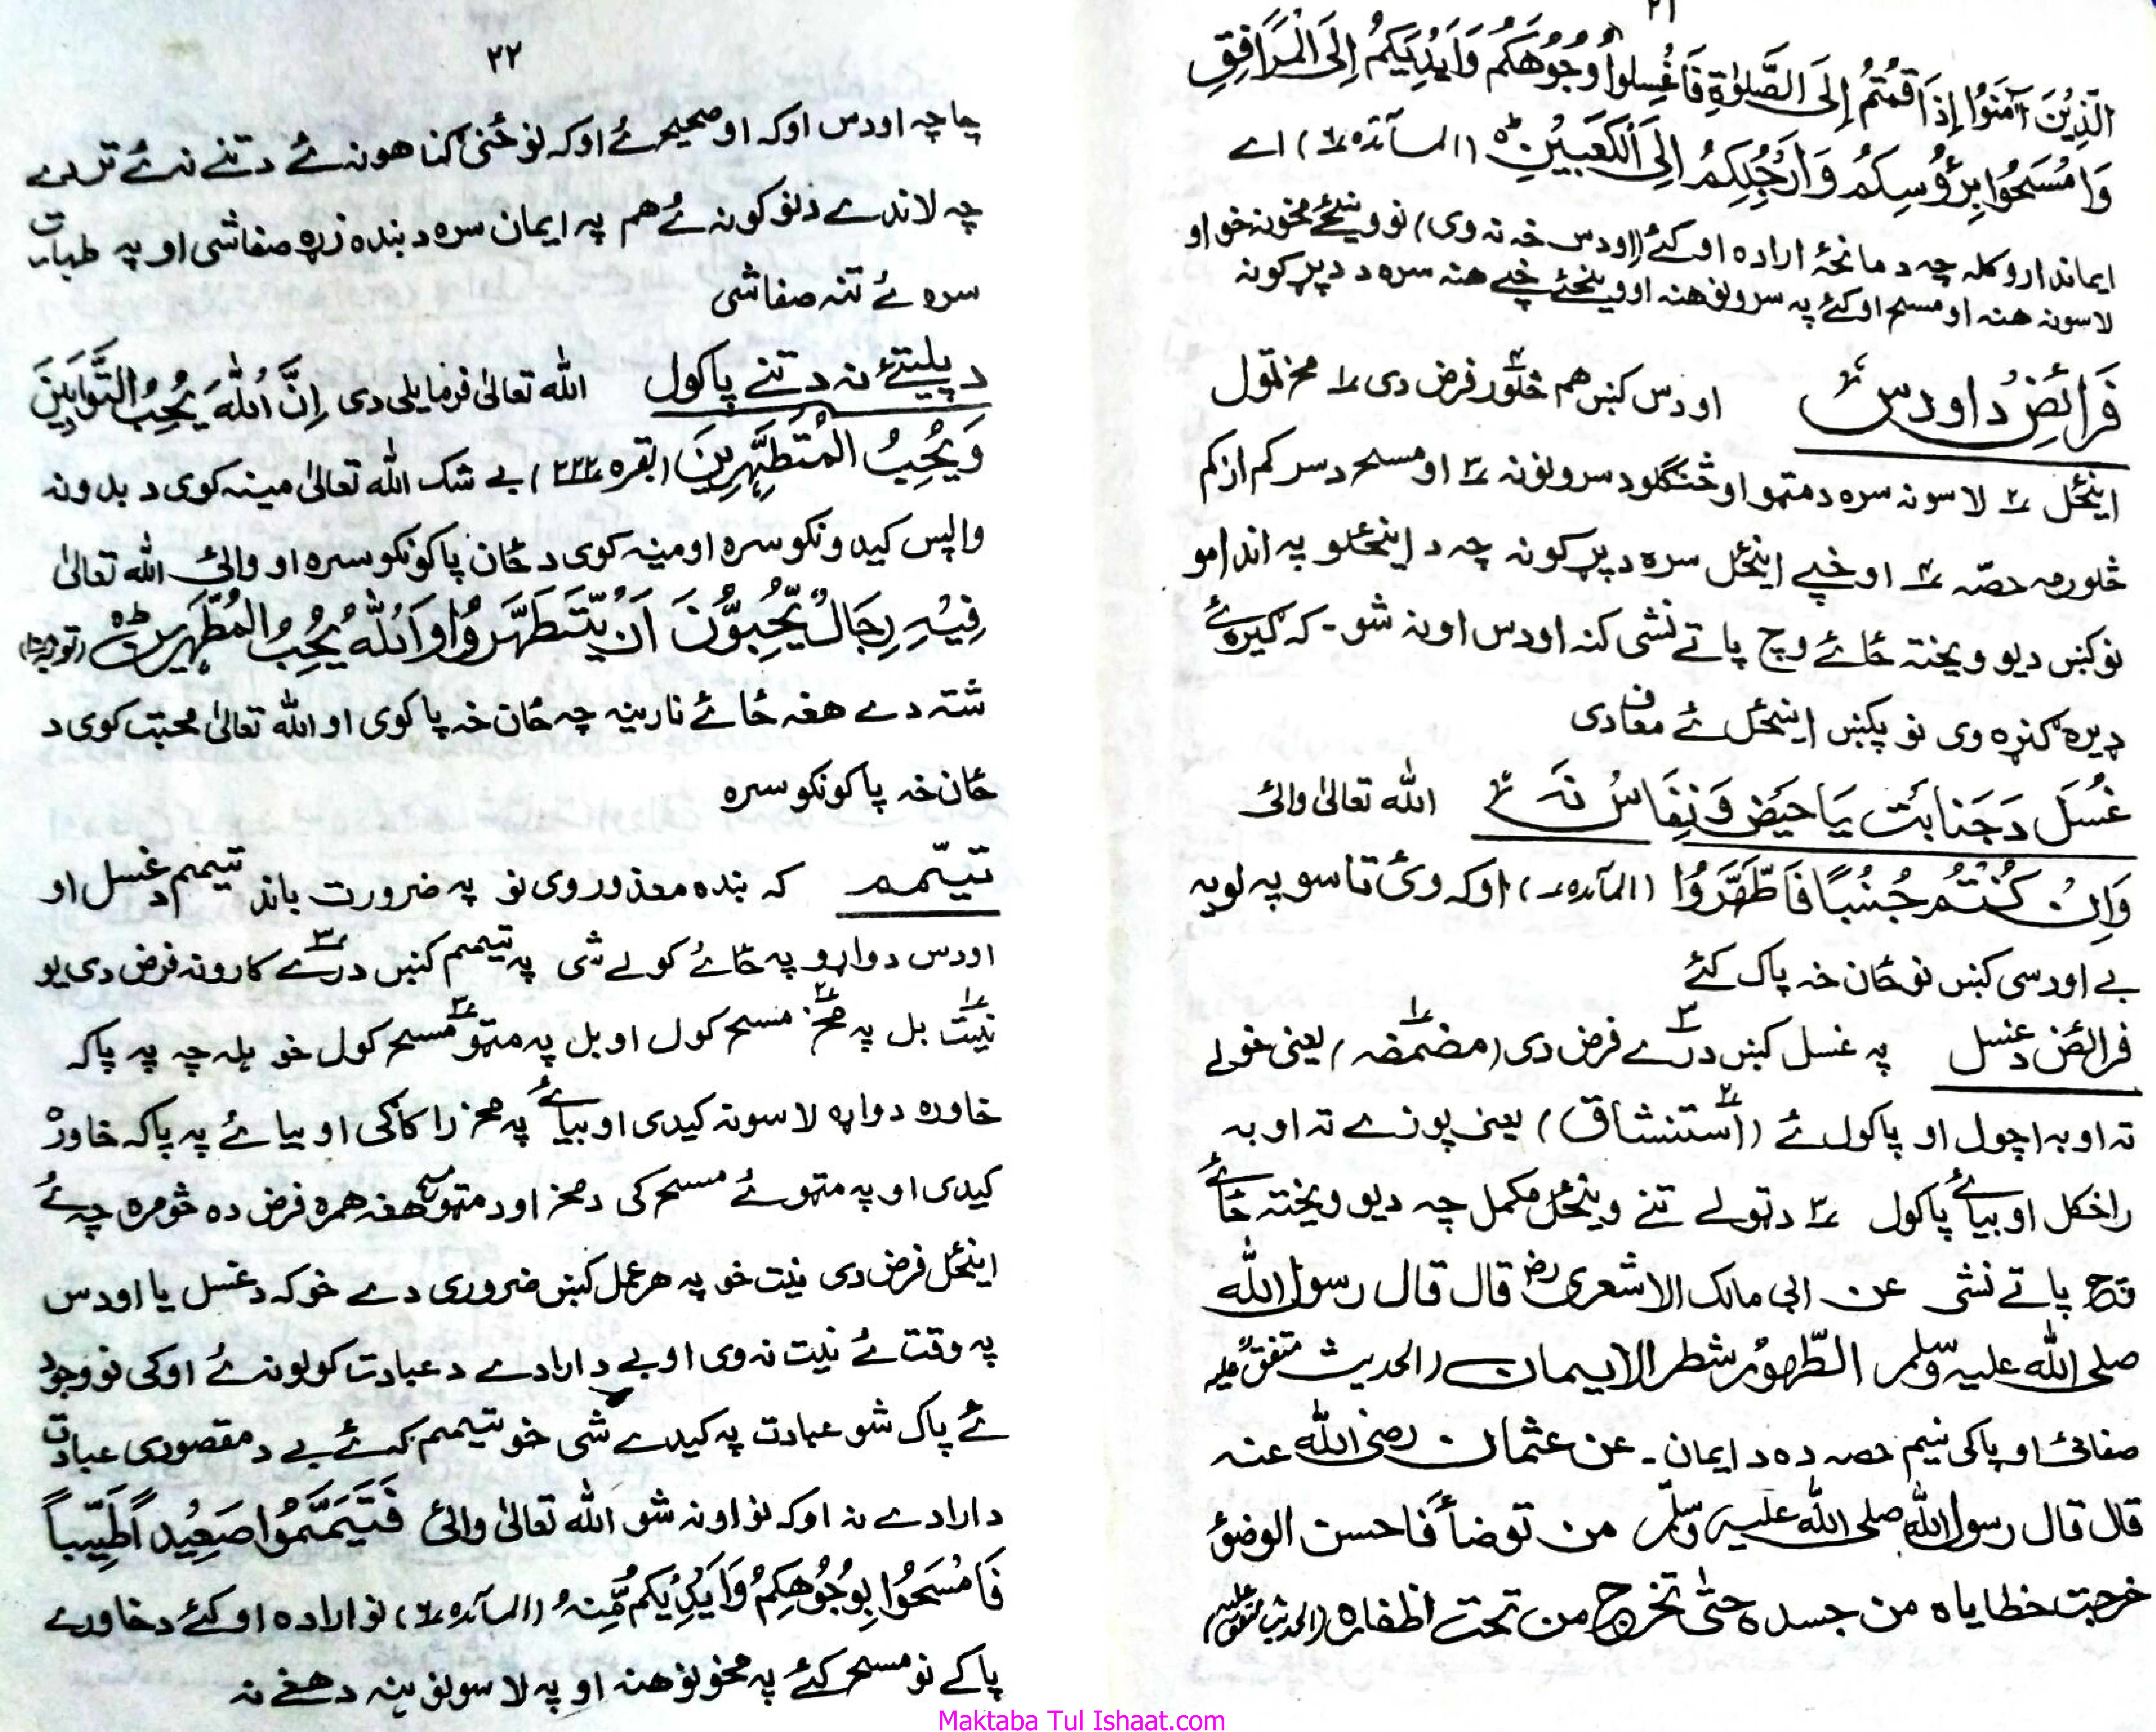 ۲۱
الَّذِيْنَ آمَنُوْا اِذَا قُمْتُمْ اِلَى الصَّلٰوةِ فَاغْسِلُوْا وُجُوْهَكُمْ وَاَيْدِيَكُمْ اِلَى الْمَرَافِقِ
وَامْسَحُوْا بِرُؤُسِكُمْ وَاَرْجُلَكُمْ اِلَى الْكَعْبَيْنِ ط (المآئده ٦) اے
ایماندارو کله چه د مانځۀ اراده اوکئے (اودس خه نه وی) نو وینځئے مخونه خو او
لاسونه هنه او مسح اوکئے په سرونو هنه او وینځئے خپے هنه سره د دپړکونه
فَرائِضْ دَ اودس ٤ اودس کښں هم څلور ٤ فرض دی ١ مخ تمول
اینځل ٢ لاسونه سره د متمو او څنګلو د سرونونه ٣ او مسح د سر کم از کم
څلورمه حصّه ٤ او خپے اینځل سره د پړکونه چه د اینځلو په اندامو
نو کښں د یو ویخته ځائے وچ پاتے نشی کنه اودس اونه شو۔ که ګیره ئے
ډیره ګنړه وی نو پکښں اینځل ئے معاف دی
غُسَل دَ جَنابَت يَا حَيض وَ نِفَاسُ نَه الله تعالیٰ وائی
وَاِنْ كُنْتُمْ جُنُبًا فَاطَّهَّرُوْا (المآئده ٦) اوکه وئ تاسو په لویه
بے اودسی کښں نو ځان خه پاک کئے
فرائض د غسل په غسل کښں درے ٣ فرض دی (مضمضه ١) یعنی خولے
ته اوبه اچول او پاکول ئے (استنشاق ٢) یعنی پوزے ته اوبه
راخکل او بیائے پاکول ٣ د ټولے تنے وینځل مکمل چه د یو ویخته ځائے
وچ پاتے نشی عن ابی مالک الاشعری رض قال قال رسول الله
صلی الله علیه وسلم الطّهور شطر الایمان (الحدیث متفق علیه
صفائی او پاکی نیم حصه ده د ایمان۔ عن عثمان رضی الله عنه
قال قال رسول الله صلی الله علیه وسلّم من توضأ فاحسن الوضوٴ
خرجت خطایاه من جسده حتّٰی تخرج من تحت اظفاره (الحدیث متفق علیه)
۲۲
چا چه اودس اوکه او صحیح ئے اوکه نو ځنی ګناهونه ئے د تنے نه ئے تردے
چه لاندے د نوکونه ئے هم په ایمان سره د بنده زړه صفا شی او په طهارت
سره ئے تنه صفا شی
د پلیتۍ نه د تنے پاکول الله تعالیٰ فرمایلی دی اِنَّ اللّٰهَ يُحِبُّ التَّوَّابِيْنَ
وَيُحِبُّ الْمُتَطَهِّرِيْنَ (بقره ٢٢٢) بے شک الله تعالیٰ مینه کوی د بدو نه
واپس کیدونکو سره او مینه کوی د ځان پاکونکو سره او وائی الله تعالیٰ
فِيْهِ رِجَالٌ يُّحِبُّوْنَ اَنْ يَّتَطَهَّرُوْا وَاللّٰهُ يُحِبُّ الْمُطَّهِّرِيْنَ ط
شته دے هغه ځائے نارینه چه ځان خه پاکوی او الله تعالیٰ محبت کوی د
ځان خه پاکونکو سره
تیمّم که بنده معذور وی نو په ضرورت باند تیمم د غسل او
اودس دواړو په ځائے کولے شی په تیمم کښں درے ٣ کارونه فرض دی یو
نیت ١ بل په مخ ٢ مسح کول او بل په متمو ٣ مسح کول خو هله چه په پاکه
خاوره دواړه لاسونه کیدی او بیائے په مخ راکاکی او بیا ئے په پاکه خاوره
کیدی او په متمو ئے مسح کی د مخ او د متمو مسح هغه همره فرض ده څومره چه ئے
اینځل فرض دی نیت خو په هر عمل کښں ضروری دے خوکه د غسل یا اودس
په وقت ئے نیت نه وی او بے د ارادے د عبادت کولو نه ئے اوکی نو وجود
ئے پاک شو عبادت په کیدے شی خو تیمم که ئے بے د مقصودی عبادت
د ارادے نه اوکه نو اونه شو الله تعالیٰ وائی فَتَيَمَّمُوْا صَعِيْدًا طَيِّبًا
فَامْسَحُوْا بِوُجُوْهِكُمْ وَاَيْدِيْكُمْ مِّنْهُ (المآئده ٦) نو اراده اوکئے د خاورے
پاکے نو مسح کئے په مخونو هنه او په لاسونو ینه د هغے نه
Maktaba Tul Ishaat.com